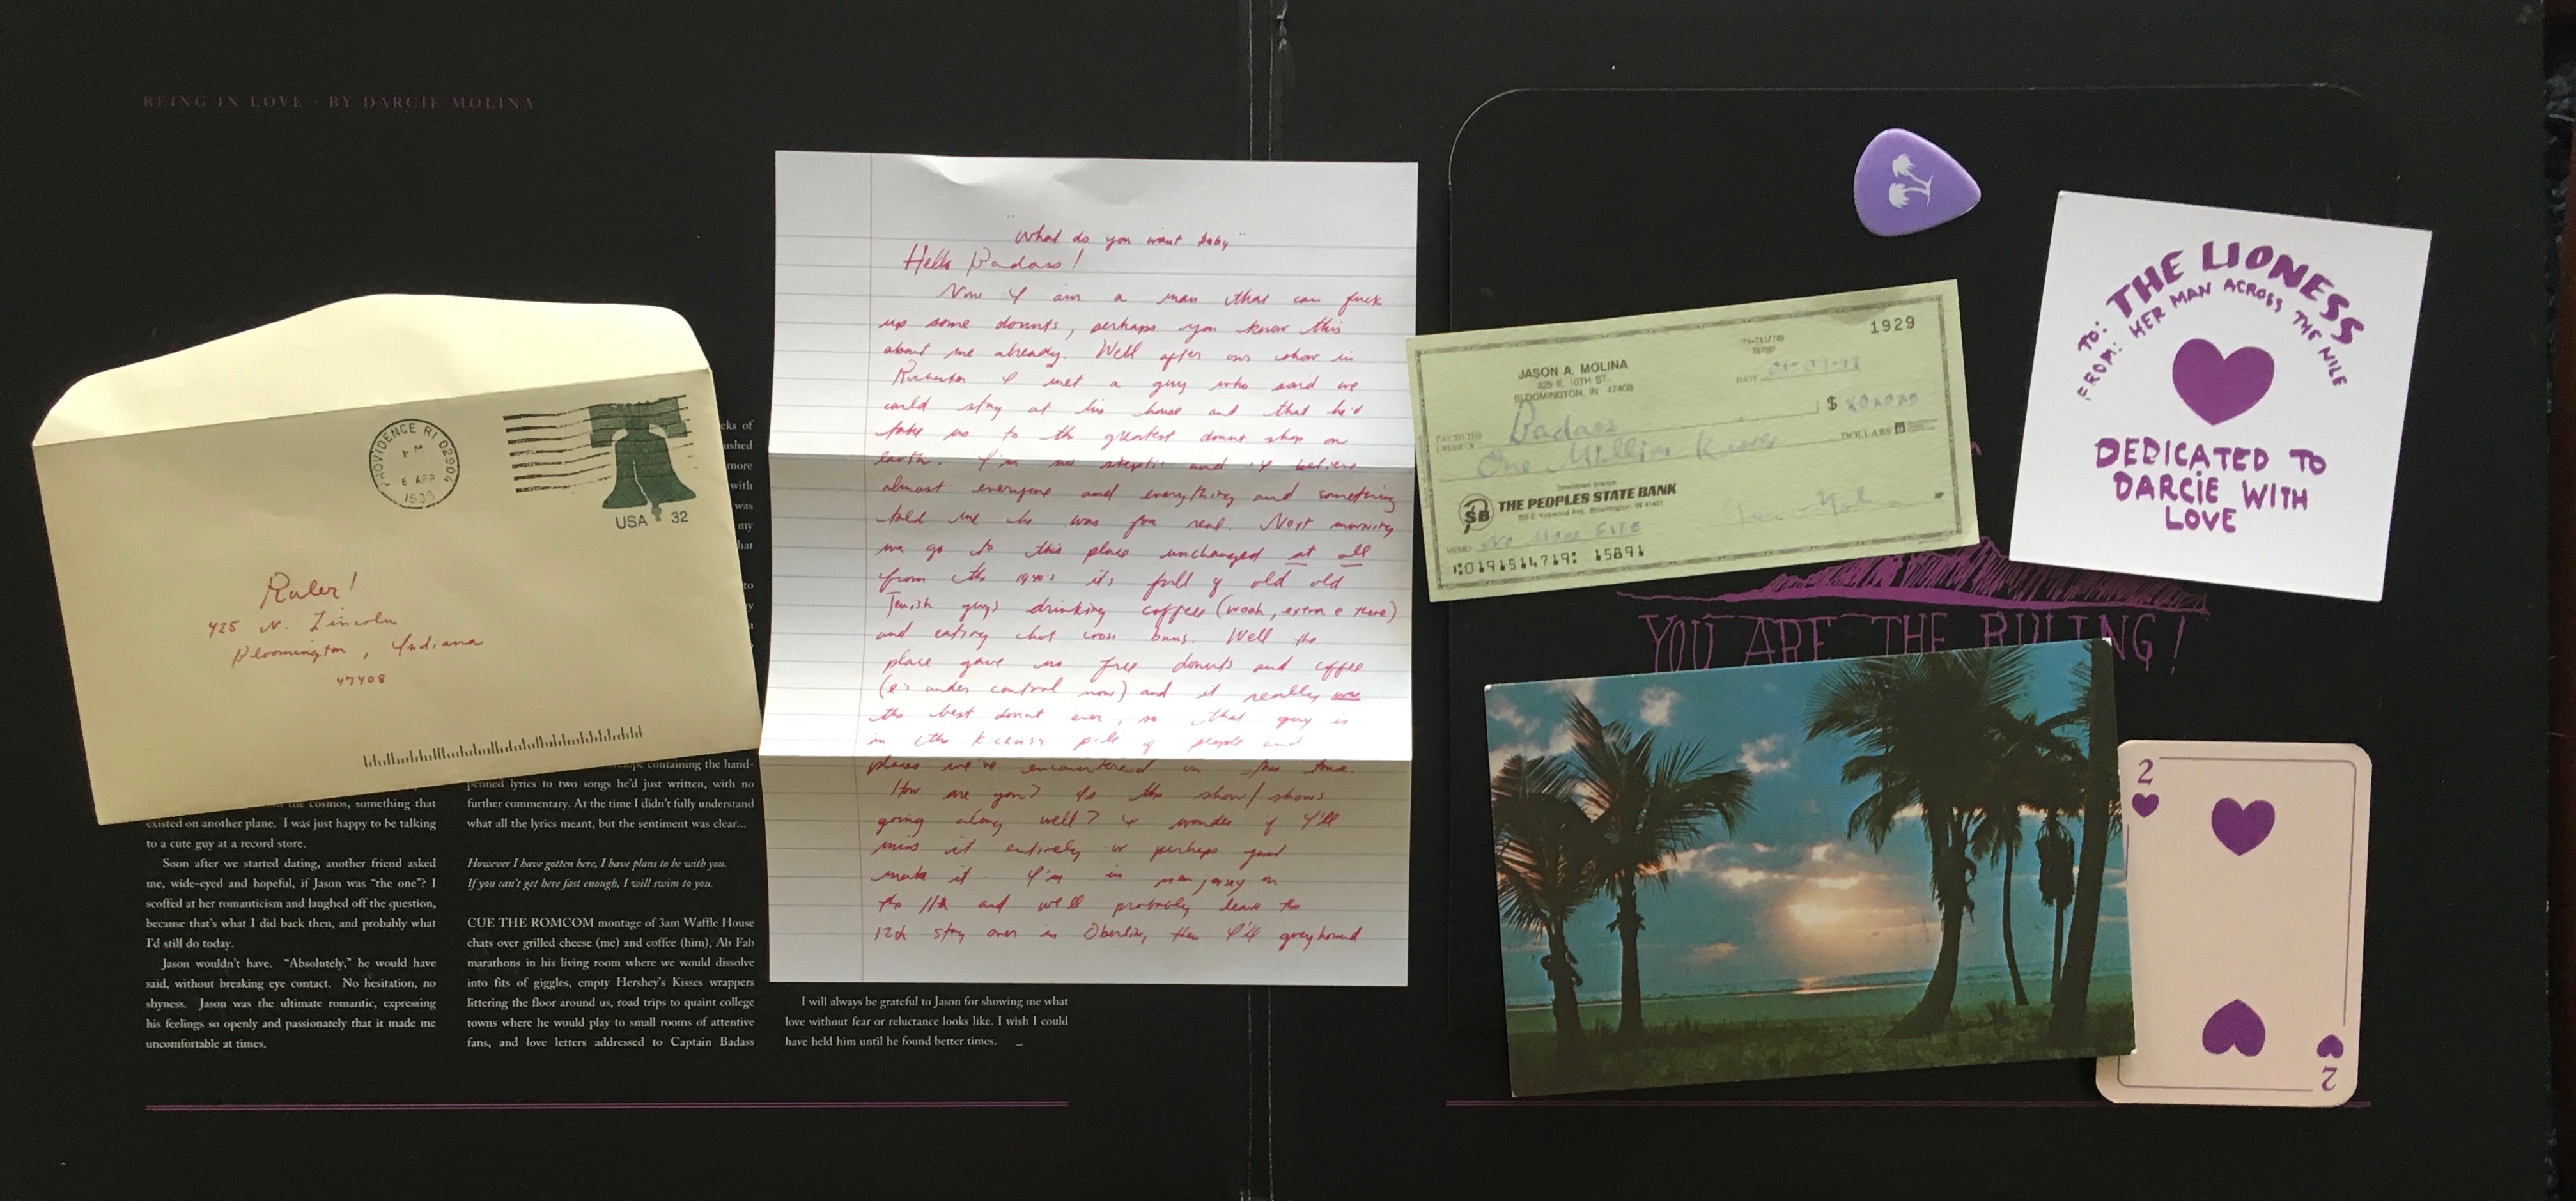 BEING IN LOVE · BY DARCIE MOLINA
PROVIDENCE RI 02904
PM
6 APR
USA 32
Ruler!
425 N. Lincoln
Bloomington, Indiana
47408
eks of
ushed
more
with
was
my
hat
to
the cosmos, something that
existed on another plane. I was just happy to be talking
to a cute guy at a record store.
Soon after we started dating, another friend asked
me, wide-eyed and hopeful, if Jason was “the one”? I
scoffed at her romanticism and laughed off the question,
because that’s what I did back then, and probably what
I’d still do today.
Jason wouldn’t have. “Absolutely,” he would have
said, without breaking eye contact. No hesitation, no
shyness. Jason was the ultimate romantic, expressing
his feelings so openly and passionately that it made me
uncomfortable at times.
containing the hand-
penned lyrics to two songs he’d just written, with no
further commentary. At the time I didn’t fully understand
what all the lyrics meant, but the sentiment was clear...
However I have gotten here, I have plans to be with you.
If you can’t get here fast enough, I will swim to you.
CUE THE ROMCOM montage of 3am Waffle House
chats over grilled cheese (me) and coffee (him), Ab Fab
marathons in his living room where we would dissolve
into fits of giggles, empty Hershey’s Kisses wrappers
littering the floor around us, road trips to quaint college
towns where he would play to small rooms of attentive
fans, and love letters addressed to Captain Badass
I will always be grateful to Jason for showing me what
love without fear or reluctance looks like. I wish I could
have held him until he found better times.
"What do you want baby"
Hello Badass!
Now I am a man that can fuck
up some donuts, perhaps you know this
about me already. Well after our show in
I met a guy who said we
could stay at his house and that he'd
take us to the greatest donut shop on
earth. I'm no skeptic and I believe
almost everyone and everything and something
told me he was for real. Next morning
we go to this place unchanged at all
from the 1940's it's full of old old
Jewish guys drinking coffeee (woah, extra e there)
and eating hot cross buns. Well the
place gave us free donuts and coffee
(e's under control now) and it really was
the best donut ever, so that guy is
in the kickass pile of people and
places we've encountered on this tour.
How are you? Is the show/shows
going along well? I wonder if I'll
miss it entirely or perhaps just
make it. I'm in new jersey on
the 11th and we'll probably leave the
12th stay over in Oberlin, then I'll greyhound
1929
JASON A. MOLINA
325 E. 10TH ST.
BLOOMINGTON, IN 47408
DATE
PAY TO THE
ORDER OF
Badass
$ XOXOXO
One Million Kisses
DOLLARS
PSB
THE PEOPLES STATE BANK
MEMO
No More
TO: THE LIONESS
FROM: HER MAN ACROSS THE NILE
DEDICATED TO
DARCIE WITH
LOVE
YOU ARE THE RULING!
2
2